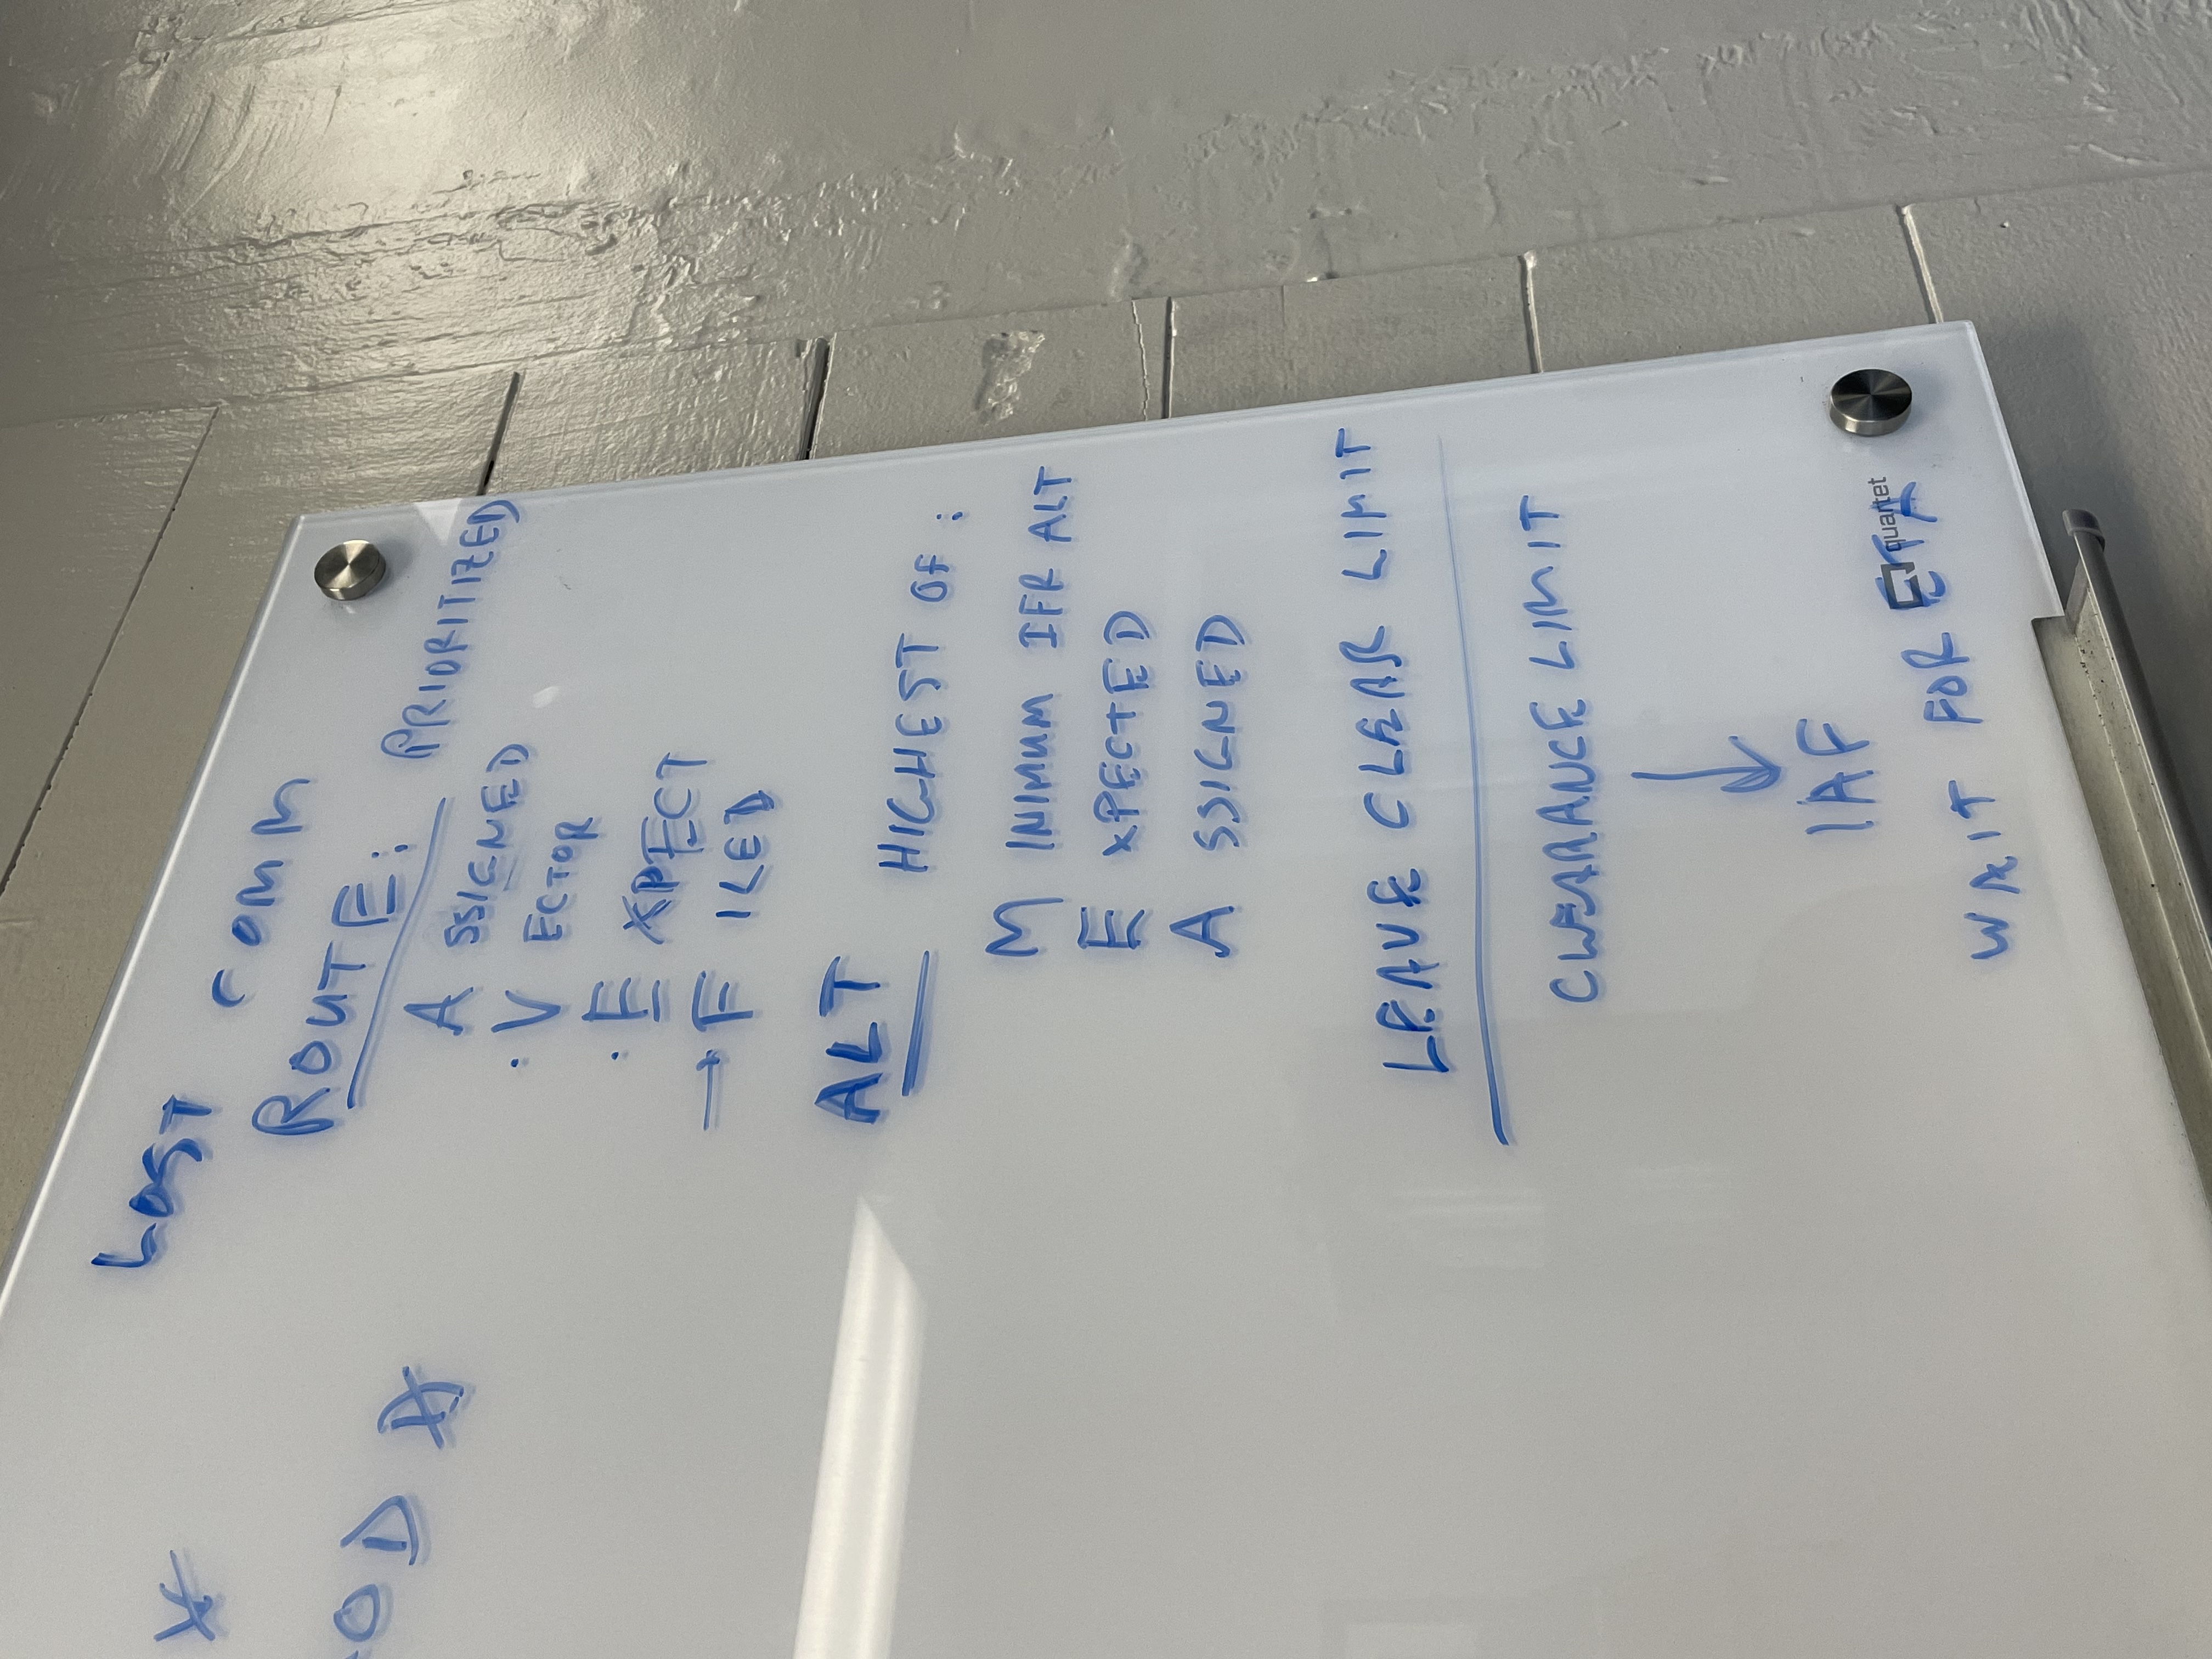 LOST COMM
ROUTE: PRIORITIZED
A SSIGNED
· V ECTOR
· E XPECT
→ F ILED
ALT HIGHEST OF:
M INIMUM IFR ALT
E XPECTED
A SSIGNED
LEAVE CLEAR LIMIT
CLEARANCE LIMIT
↓
IAF
WAIT FOR ETA
quartet